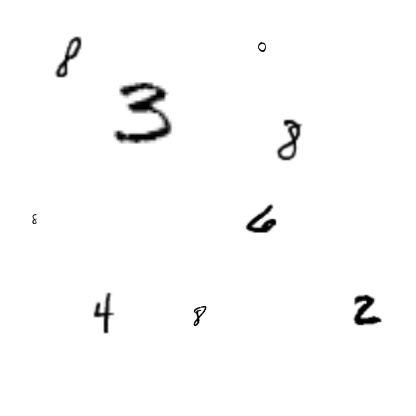 8 0
3
8
8 6
4 8 2